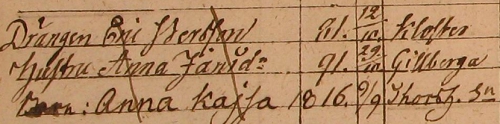 Drängen Eric Persson 81. 12/10. Kloster
Hustru Anna Jansdr 91. 29/10 Gillberga
Barn: Anna Kajsa 1816. 9/9